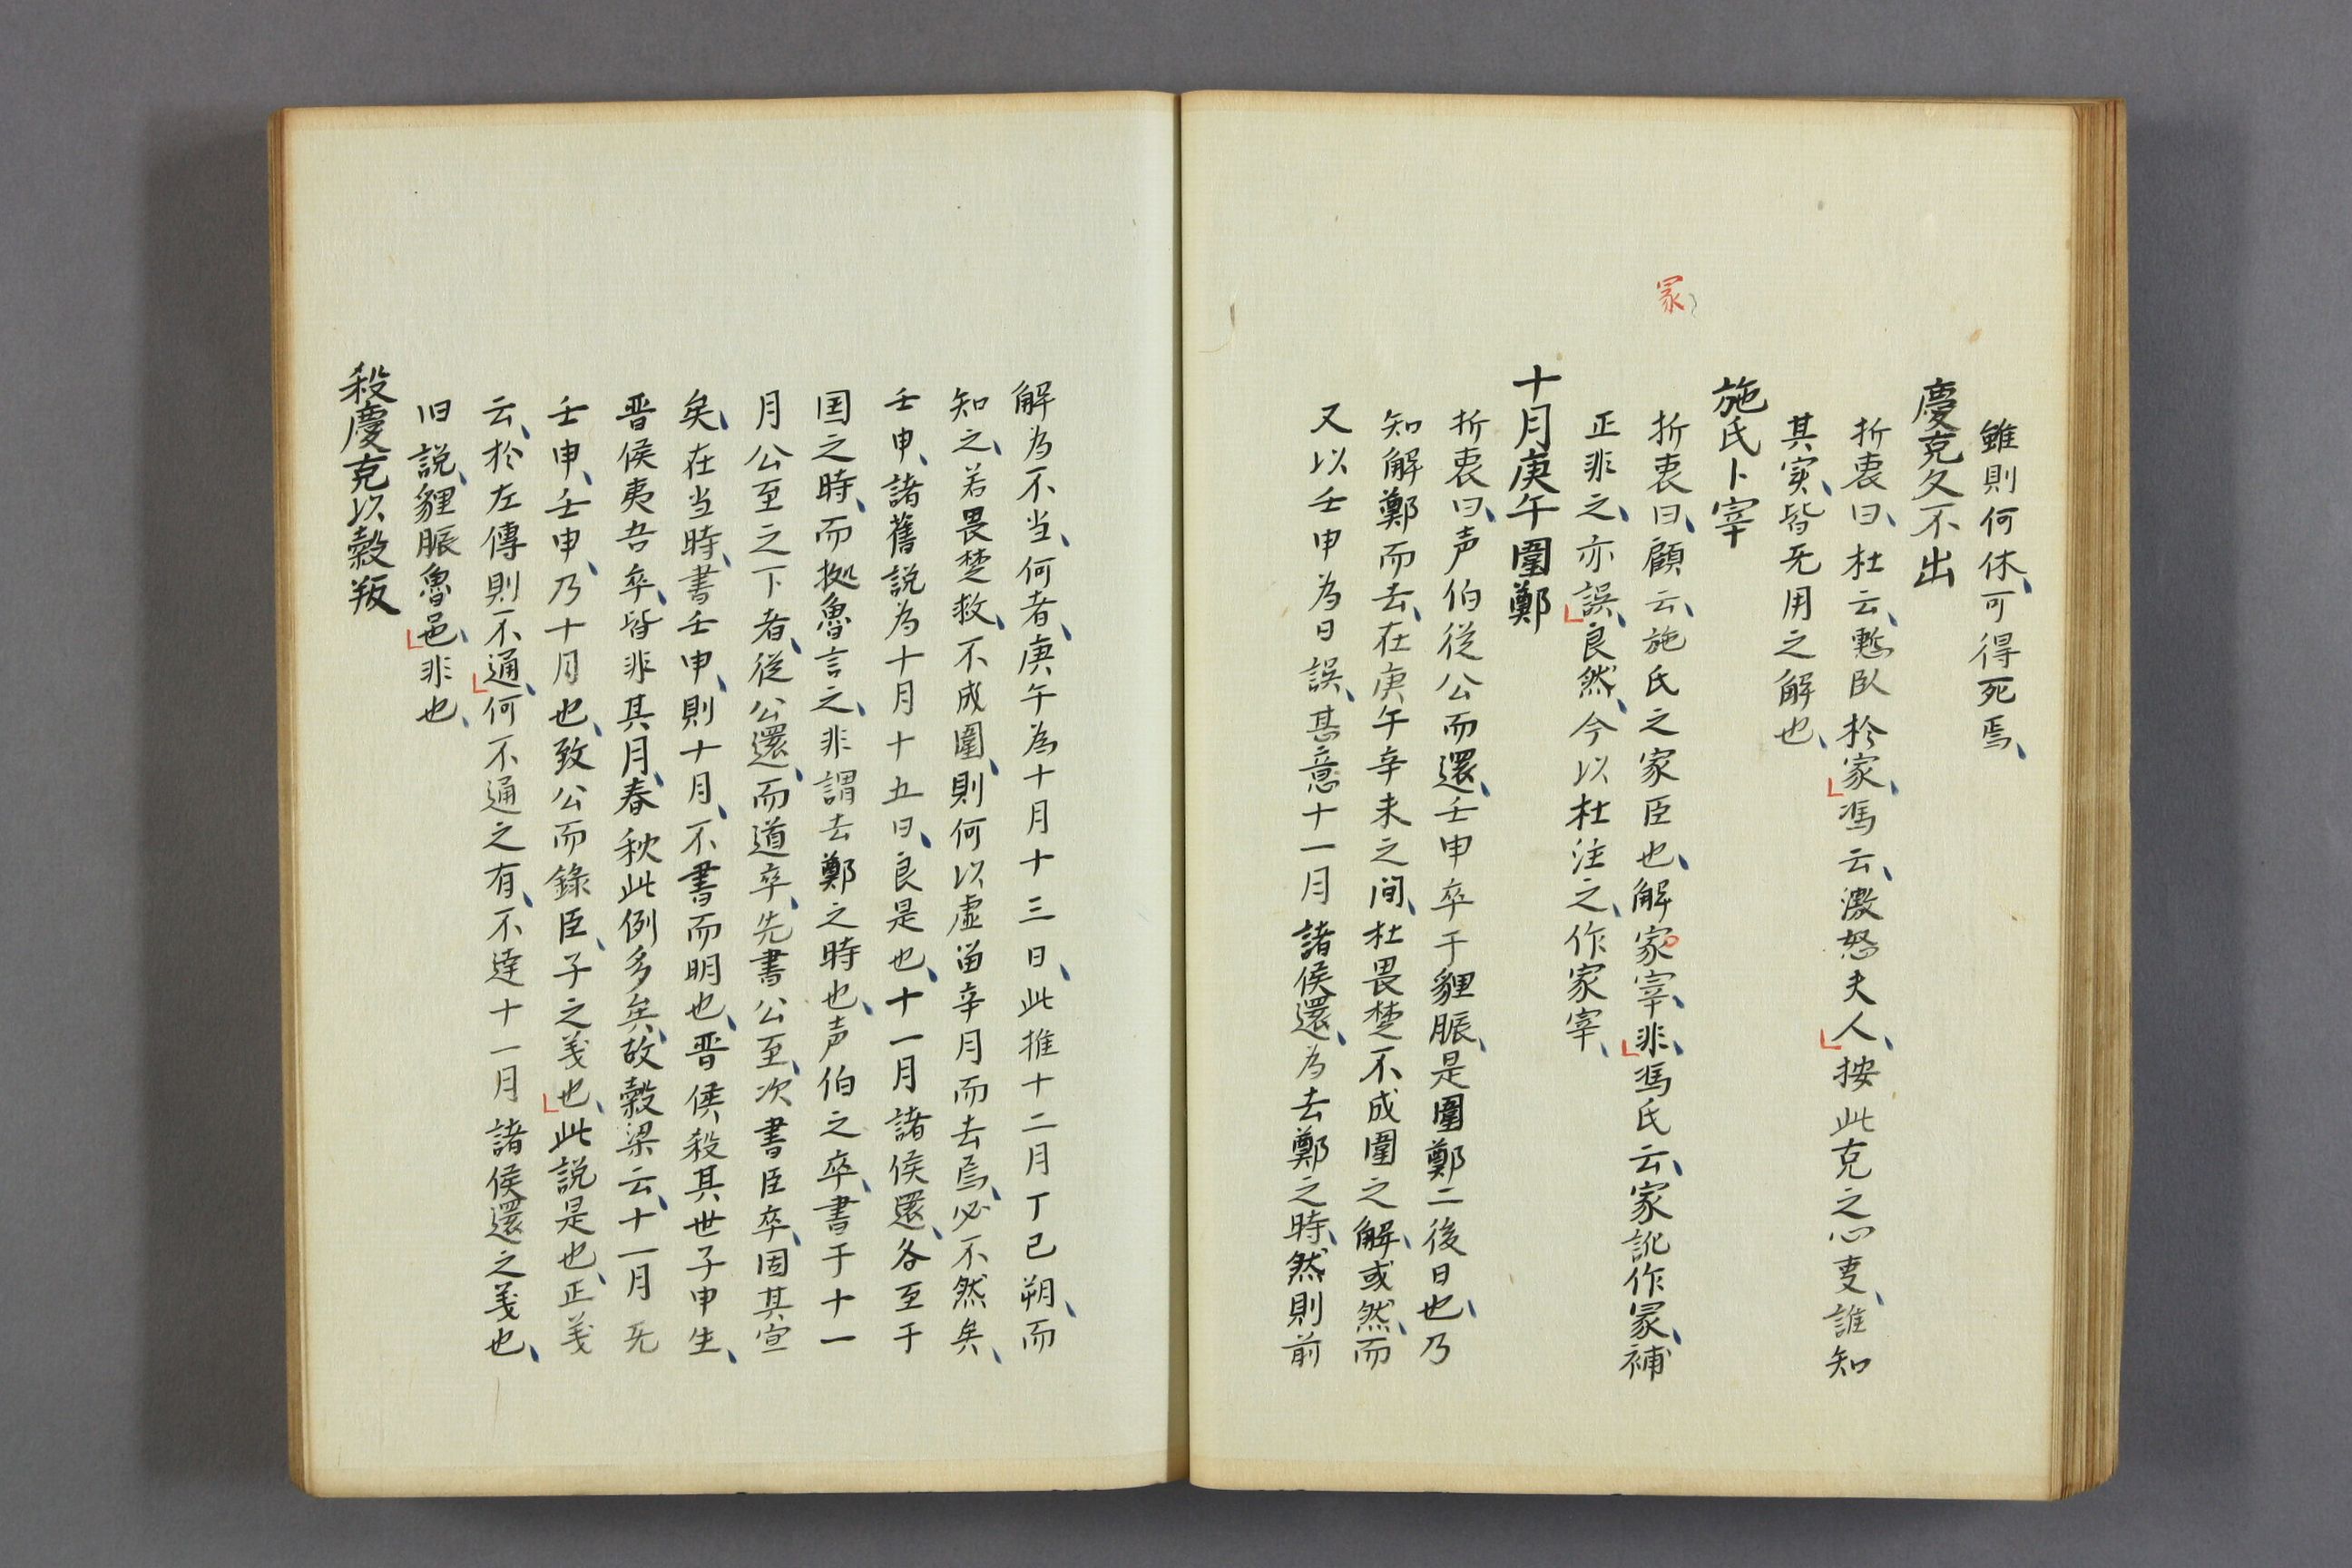 雖則何休、可得死焉、
慶克久不出
折衷曰、杜云、慙臥於家、馮云、激怒夫人、按此克之心叓、誰知
其実、皆旡用之解也、
施氏卜宰
冡
折衷曰、顧云、施氏之家臣也、解家宰、非、馮氏云、家訛作冡、補
正非之、亦誤、良然、今以杜注之、作家宰、
十月庚午圍鄭
折衷曰、声伯從公而還、壬申卒于貍脤、是圍鄭二後日也、乃
知解鄭而去、在庚午辛未之间、杜畏楚不成圍之解、或然、而
又以壬申為日誤、甚意十一月諸侯還、為去鄭之時、然則前
解為不当、何者、庚午為十月十三日、此推十二月丁已朔、而
知之、若畏楚救、不成圍、則何以虚畄辛月而去焉、必不然矣、
壬申、諸舊説為十月十五日、良是也、十一月諸侯還、各至于
国之時、而拠魯言之、非謂去鄭之時也、声伯之卒、書于十一
月公至之下者、從公還、而道卒、先書公至、次書臣卒、固其宣
矣、在当時、書壬申、則十月、不書而明也、晋侯殺其世子申生、
晋侯夷吾卒、皆非其月、春秋此例多矣、故穀梁云、十一月旡
壬申、壬申、乃十月也、致公而錄臣、子之義也、此説是也、正義
云、於左傳則不通、何不通之有、不達十一月諸侯還之義也、
旧説、貍脤魯邑、非也、
殺慶克以穀叛